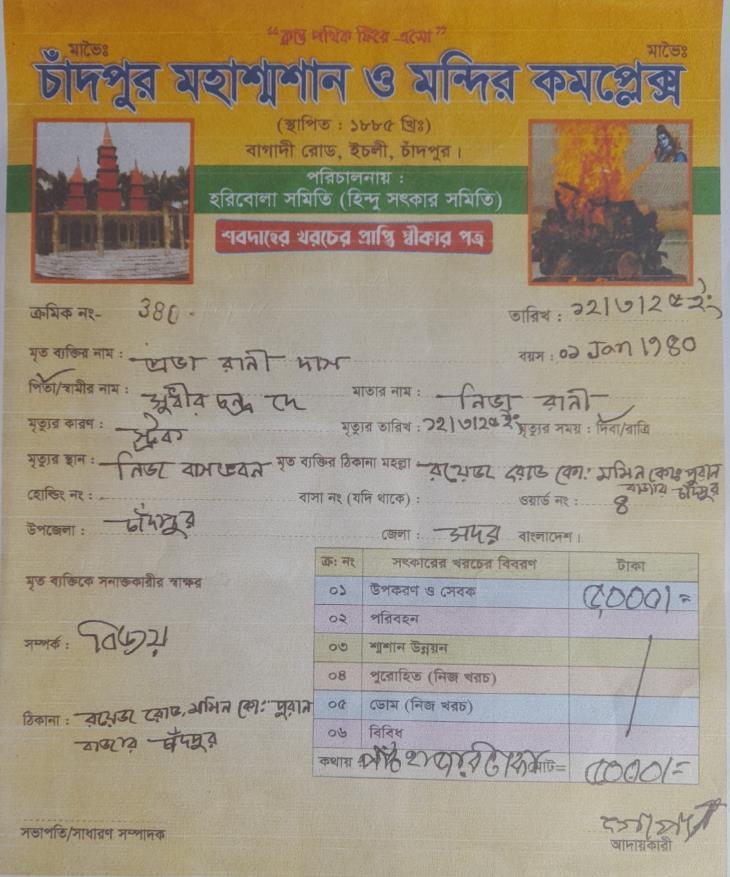 “ক্লান্ত পথিক ফিরে এসো”
মাভৈঃ মাভৈঃ
চাঁদপুর মহাশ্মশান ও মন্দির কমপ্লেক্স
(স্থাপিত : ১৮৮৫ খ্রিঃ)
বাগাদী রোড, ইচলী, চাঁদপুর।
পরিচালনায় :
হরিবোলা সমিতি (হিন্দু সৎকার সমিতি)
শবদাহের খরচের প্রাপ্তি স্বীকার পত্র
ক্রমিক নং- 380 তারিখ : ১২/৩/2৫ ইং
মৃত ব্যক্তির নাম : প্রভা রানী দাস বয়স : ০১ Jan 1980
পিতা/স্বামীর নাম : সুধীর চন্দ্র দে মাতার নাম : নিভা রানী
মৃত্যুর কারণ : স্ট্রক মৃত্যুর তারিখ : ১২/৩/2৫ ইং মৃত্যুর সময় : দিবা/রাত্রি
মৃত্যুর স্থান : নিজ বাসভবন মৃত ব্যক্তির ঠিকানা মহল্লা : রয়েজ রোড কো: মসিন কোঃ পুরান
বাজার চাঁদপুর
হোল্ডিং নং : বাসা নং (যদি থাকে) : ওয়ার্ড নং : 8
উপজেলা : চাঁদপুর জেলা : সদর বাংলাদেশ।
ক্র: নং সৎকারের খরচের বিবরণ টাকা
০১ উপকরণ ও সেবক ৫০০০/=
০২ পরিবহন
০৩ শ্মশান উন্নয়ন
০৪ পুরোহিত (নিজ খরচ)
০৫ ডোম (নিজ খরচ)
০৬ বিবিধ
কথায় পাঁচ হাজার টাকা মোট= ৫০০০/=
মৃত ব্যক্তিকে সনাক্তকারীর স্বাক্ষর
সম্পর্ক : বিজয়
ঠিকানা : রয়েজ রোড, মসিন কো: পুরান
বাজার চাঁদপুর
সভাপতি/সাধারণ সম্পাদক
আদায়কারী